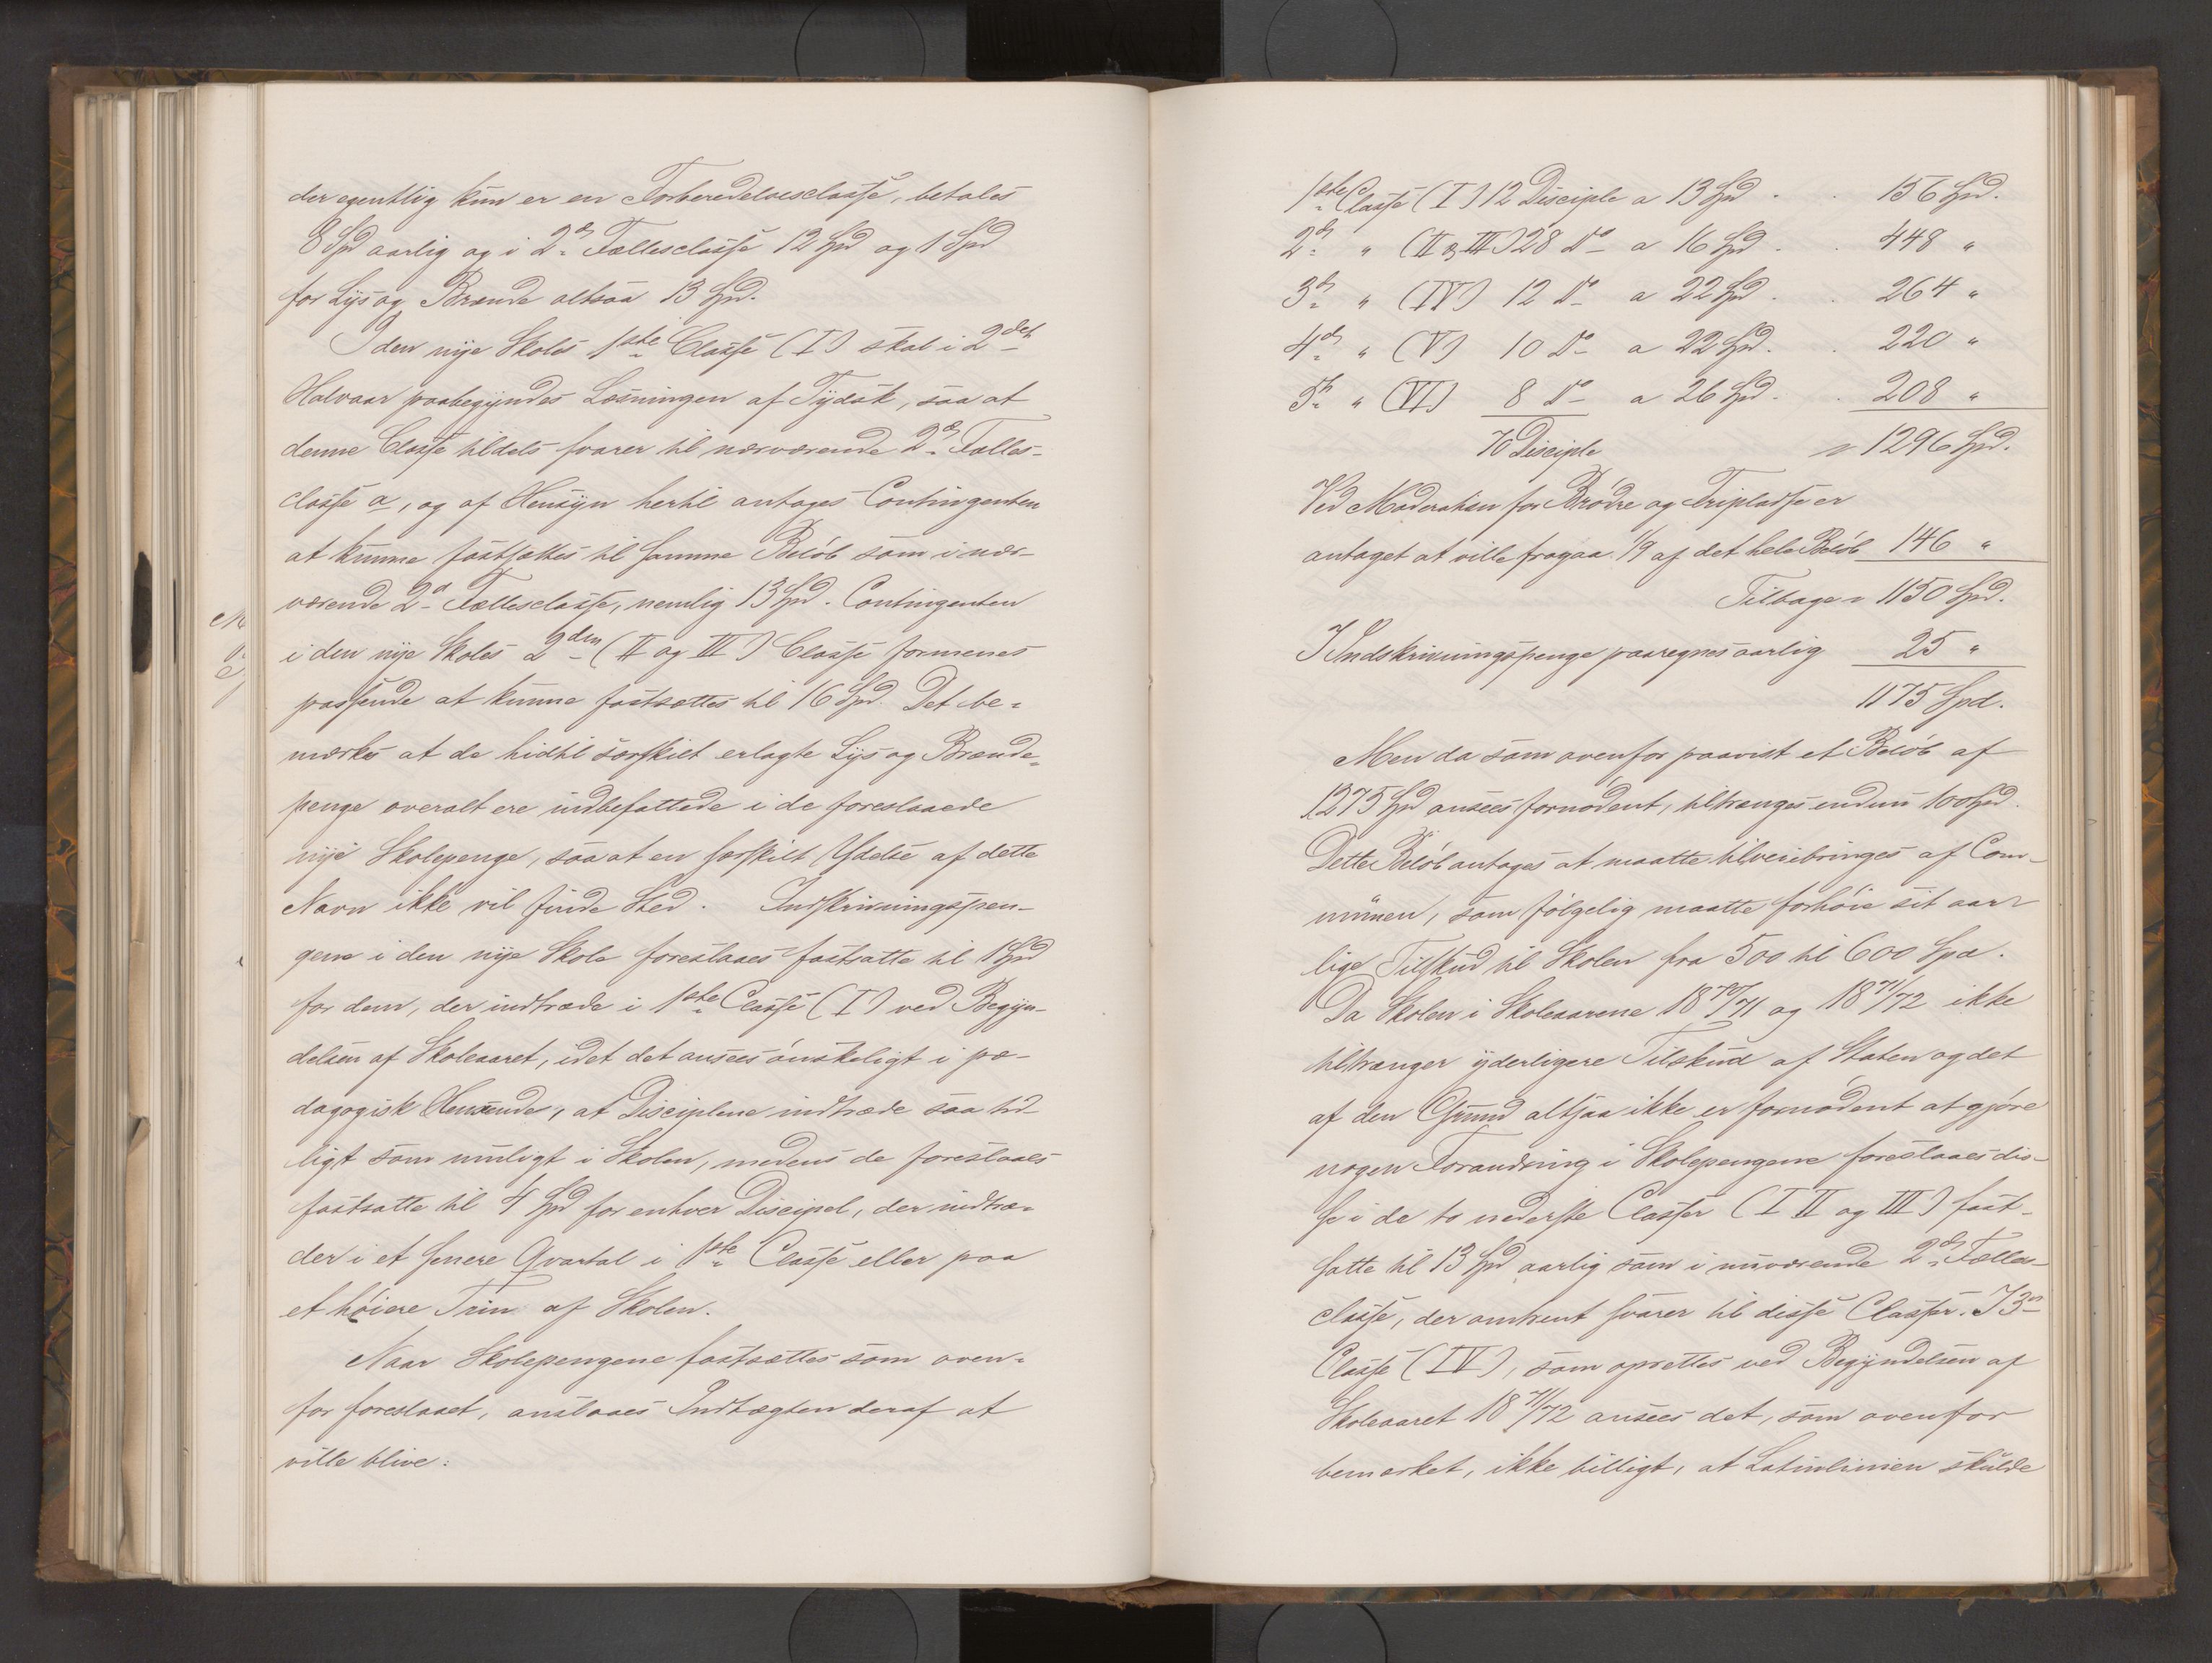 der egentlig kun er en Forberedelsesclasse, betales
8 Spd aarlig og i 2d Fællesclasse 12 Spd og 1 Spd
for Lys og Brænde altsaa 13 Spd.
I den nye Skoles 1ste Classe (I) skal i 2det
Halvaar paabegyndes Læsningen af Tydsk, saa at
denne Classe tildels svarer til nærværende 2d Fælles-
classe a, og af Hensyn hertil antages Contingenten
at kunne fastsættes til samme Beløb som i nær-
værende 2d Fællesclasse, nemlig 13 Spd. Contingenten
i den nye Skoles 2den (II og III) Classe formenes
passende at kunne fastsættes til 16 Spd. Det be-
mærkes at de hidtil særskilt erlagte Lys og Brænde-
penge overalt ere indbefattede i de foreslaaede
nye Skolepenge, saa at en særskilt Ydelse af dette
Navn ikke vil finde Sted. Indskrivningspen-
gene i den nye Skole foreslaaes fastsatte til 1 Spd
for dem, der indtræde i 1ste Classe (I) ved Begyn-
delsen af Skoleaaret, idet det ansees ønskeligt i pæ-
dagogisk Henseende, at Disciplene indtræde saa tid-
ligt som muligt i Skolen, medens de foreslaaes
fastsatte til 4 Spd for enhver Discipel, der indtræ-
der i et senere Qvartal i 1ste Classe eller paa
et høiere Trin af Skolen.
Naar Skolepengene fastsættes som oven-
for foreslaaet, anslaaes Indtægten deraf at
ville blive:
1ste Classe (I) 12 Disciple a 13 Spd . . 156 Spd.
2d " (II & III) 28 Do a 16 Spd . . 448 "
3d " (IV) 12 Do a 22 Spd . . 264 "
4d " (V) 10 Do a 22 Spd. . 220 "
5t " (VI) 8 Do a 26 Spd. . 208 "
70 Disciple 1296 Spd.
Ved Moderation for Brødre og Fripladse er
antaget at ville fragaa 1/9 af det hele Beløb 146 "
Tilbage 1150 Spd.
I Indskrivningspenge paaregnes aarlig 25 "
1175 Spd.
Men da som ovenfor paavist et Beløb af
1275 Spd ansees fornødent, tiltrænges endnu 100 Spd.
Dette Beløb antages at maatte tilveiebringes af Com-
munen, som følgelig maatte forhøie sit aar-
lige Tilskud til Skolen fra 500 til 600 Spd.
Da Skolen i Skoleaarene 1870/71 og 1871/72 ikke
tiltrænger yderligere Tilskud af Staten og det
af den Grund altsaa ikke er fornødent at gjøre
nogen Forandring i Skolepengene foreslaaes dis-
se i de to nederste Classer (I II og III) fast-
satte til 13 Spd aarlig som i nuværende 2d Fælles-
classe, der omtrent svarer til disse Classer. I 3d
Classe (IV), som oprettes ved Begyndelsen af
Skoleaaret 1871/72 ansees det, som ovenfor
bemærket, ikke billigt, at Latinlinien skulde